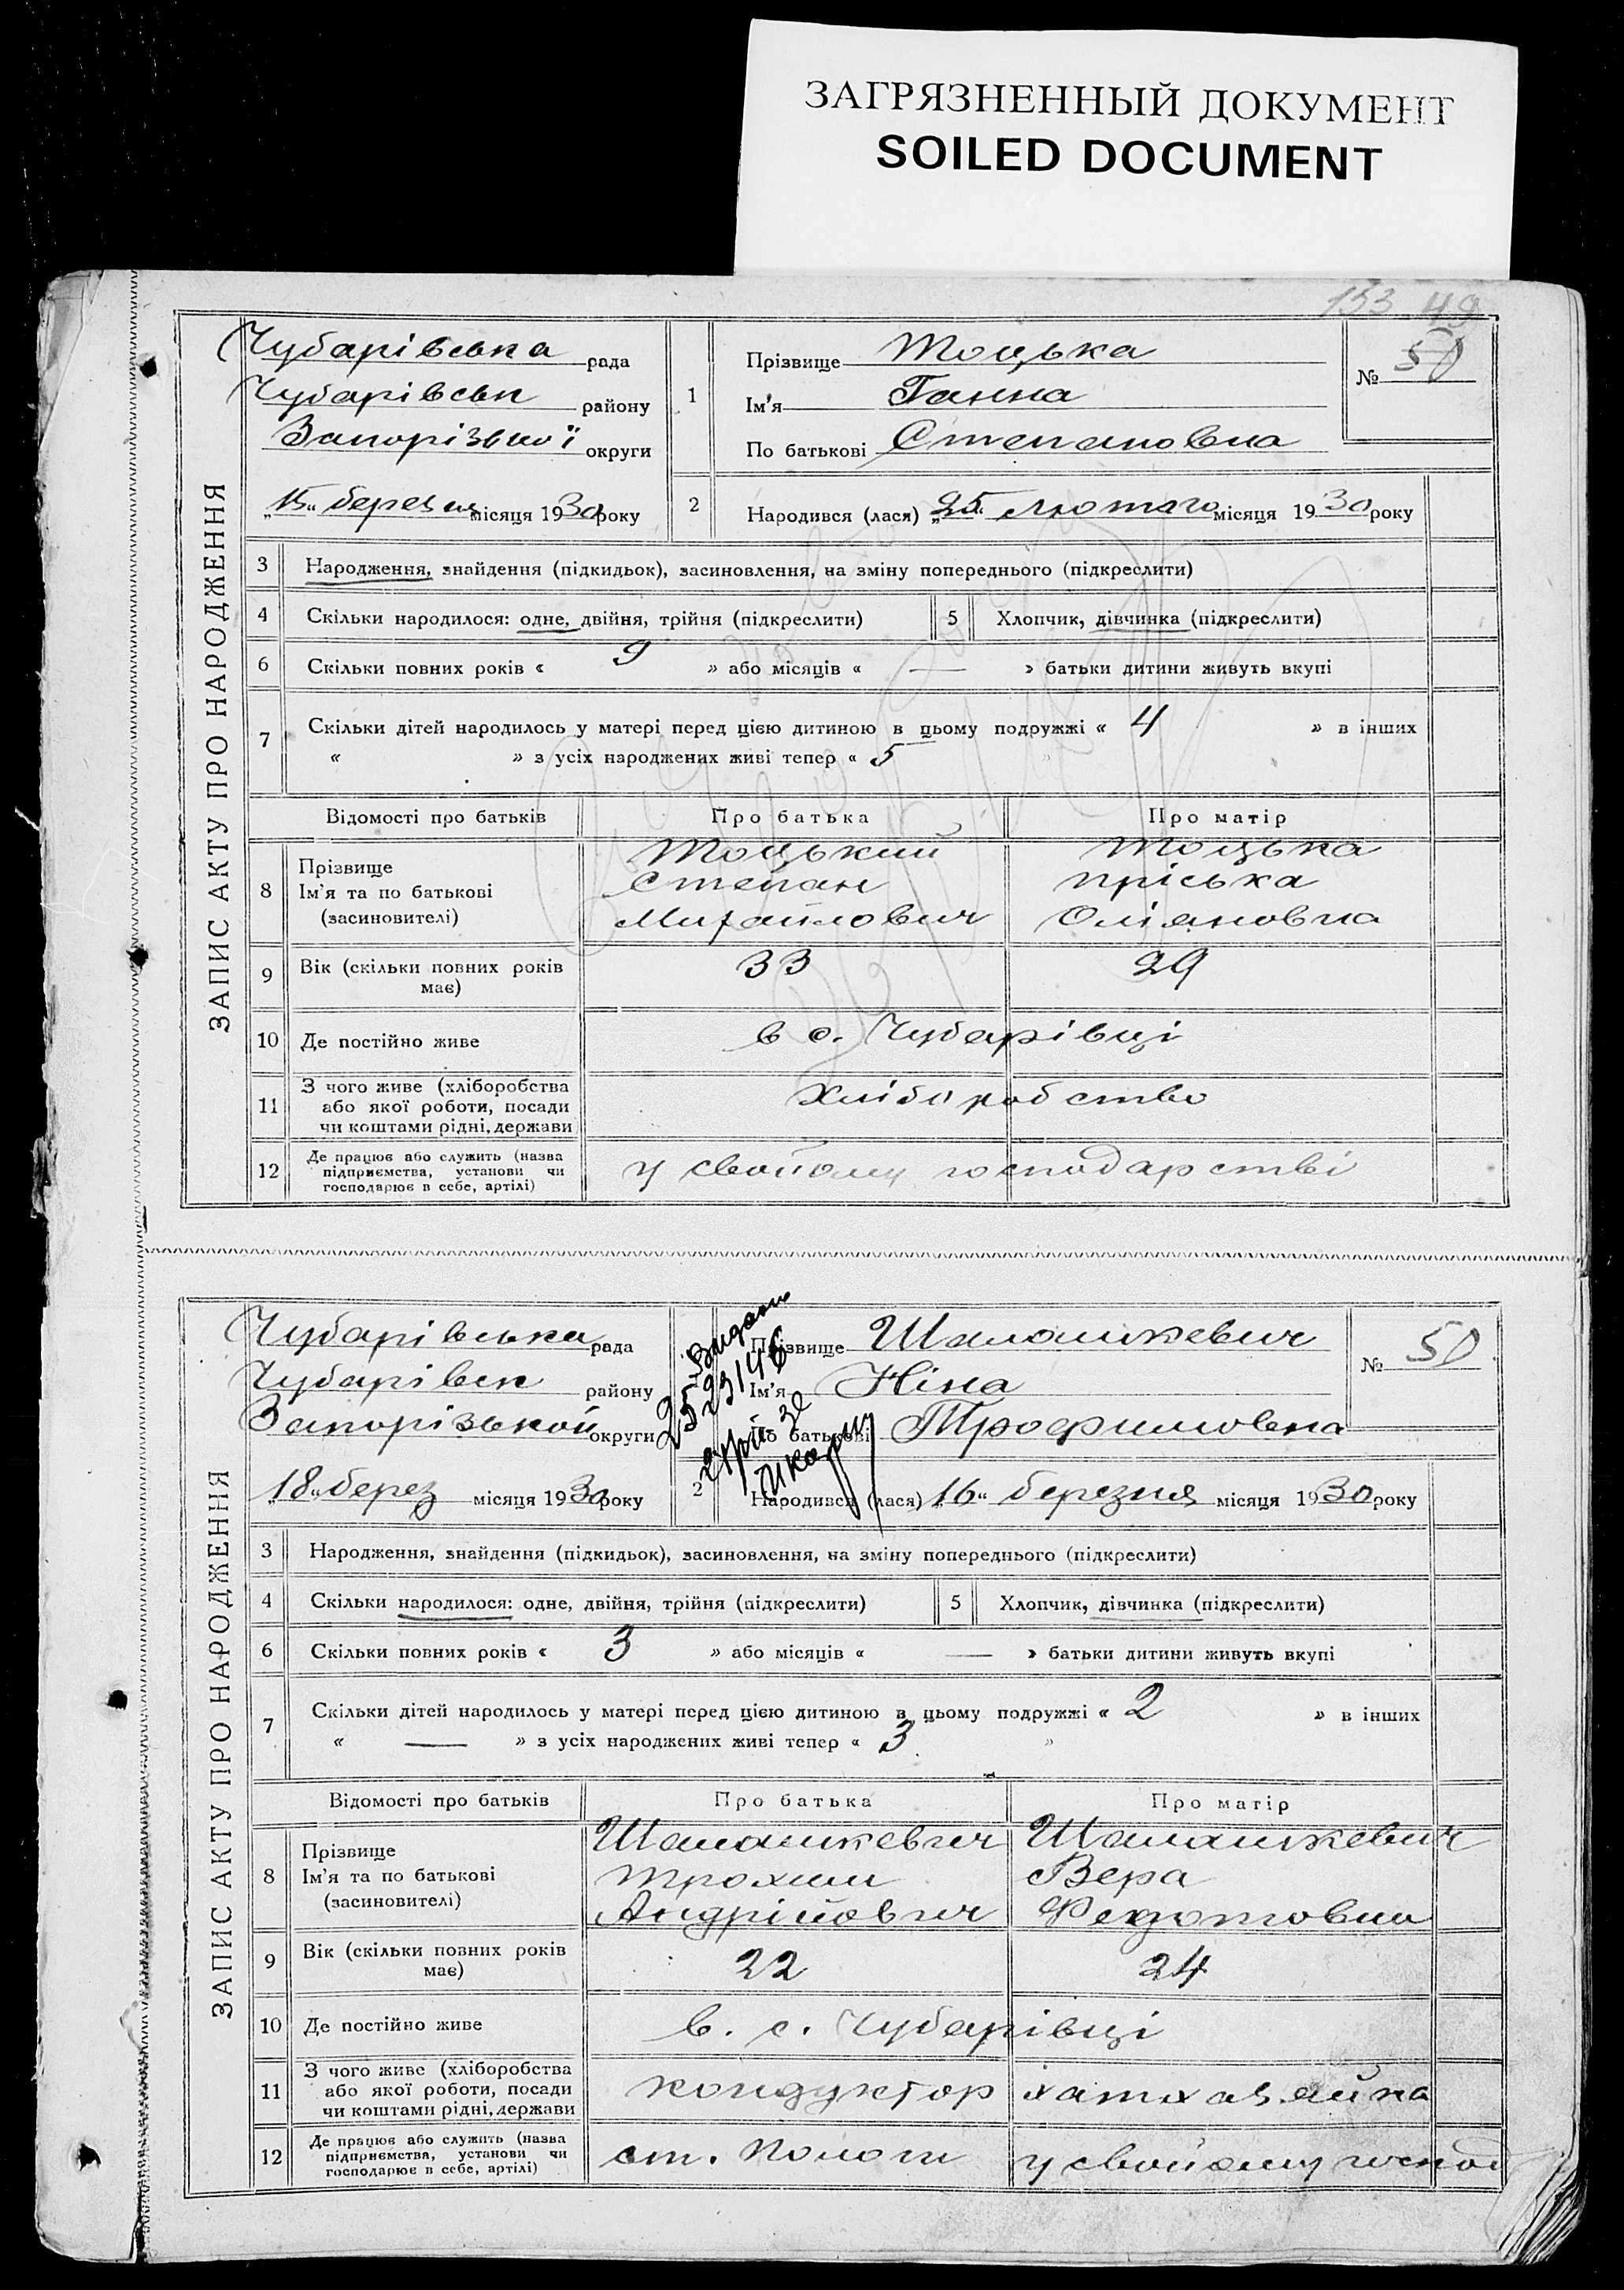 ЗАГРЯЗНЕННЫЙ ДОКУМЕНТ
SOILED DOCUMENT
153 49
ЗАПИС АКТУ ПРО НАРОДЖЕННЯ
Чубарівська рада
Чубарівськ району
Запорізької округи
„15“ березня місяця 1930 року
1 Прізвище Тоцька
Ім'я Ганна
По батькові Степановна
№ 50
2 Народився (лася) „25“ лютого місяця 1930 року
3 Народження, знайдення (підкидьок), засиновлення, на зміну попереднього (підкреслити)
4 Скільки народилося: одне, двійня, трійня (підкреслити) 5 Хлопчик, дівчинка (підкреслити)
6 Скільки повних років « 9 » або місяців « — » батьки дитини живуть вкупі
7 Скільки дітей народилось у матері перед цією дитиною в цьому подружжі « 4 » в інших
« » з усіх народжених живі тепер « 5 »
Відомості про батьків Про батька Про матір
8 Прізвище Тоцький Тоцька
Ім'я та по батькові Степан Пріська
(засиновителі) Михайлович Оліяновна
9 Вік (скільки повних років має) 33 29
10 Де постійно живе в с. Чубарівці
11 З чого живе (хліборобства або якої роботи, посади чи коштами рідні, держави Хліборобство
12 Де працює або служить (назва підприємства, установи чи господарює в себе, артілі) у свойому господарстві
ЗАПИС АКТУ ПРО НАРОДЖЕННЯ
Чубарівська рада
Чубарівськ району
Запорізької округи
„18“ берез місяця 1930 року
1 Прізвище Шаламкевич
Ім'я Ніна
По батькові Трофимовна
№ 50
2 Народився (лася) „16“ березня місяця 1930 року
3 Народження, знайдення (підкидьок), засиновлення, на зміну попереднього (підкреслити)
4 Скільки народилося: одне, двійня, трійня (підкреслити) 5 Хлопчик, дівчинка (підкреслити)
6 Скільки повних років « 3 » або місяців « — » батьки дитини живуть вкупі
7 Скільки дітей народилось у матері перед цією дитиною в цьому подружжі « 2 » в інших
« — » з усіх народжених живі тепер « 3 »
Відомості про батьків Про батька Про матір
8 Прізвище Шаламкевич Шаламкевич
Ім'я та по батькові Трохим Вера
(засиновителі) Андрійович Федотовна
9 Вік (скільки повних років має) 22 24
10 Де постійно живе в. с. Чубарівці
11 З чого живе (хліборобства або якої роботи, посади чи коштами рідні, держави кондуктор хатхазяйка
12 Де працює або служить (назва підприємства, установи чи господарює в себе, артілі) ст. Пологи у свойому господ